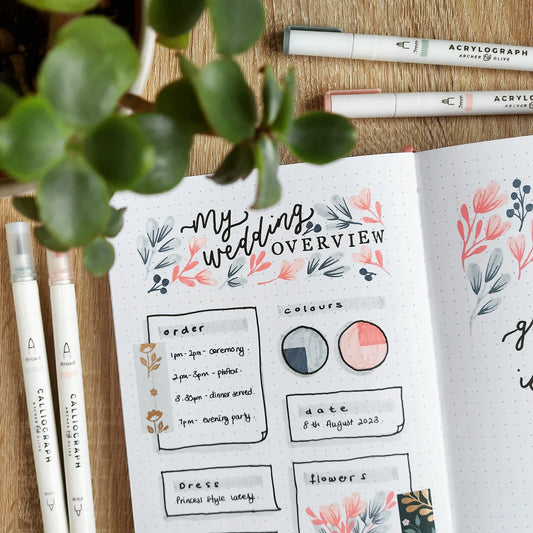 ACRYLOGRAPH
ARCHER & OLIVE
.7mm
ACRYLOG
ARCHER & OLIVE
.7mm
my
wedding OVERVIEW
order
1pm - 2pm - ceremony
2pm - 3pm - photos.
3.30pm - dinner served.
7pm - evening party.
colours
date
8th August 2023
Dress
Princess style lacey.
flowers
A
Broad
CALLIOGRAPH
ARCHER & OLIVE
A
Broad
CALLIOGRAPH
ARCHER & OLIVE